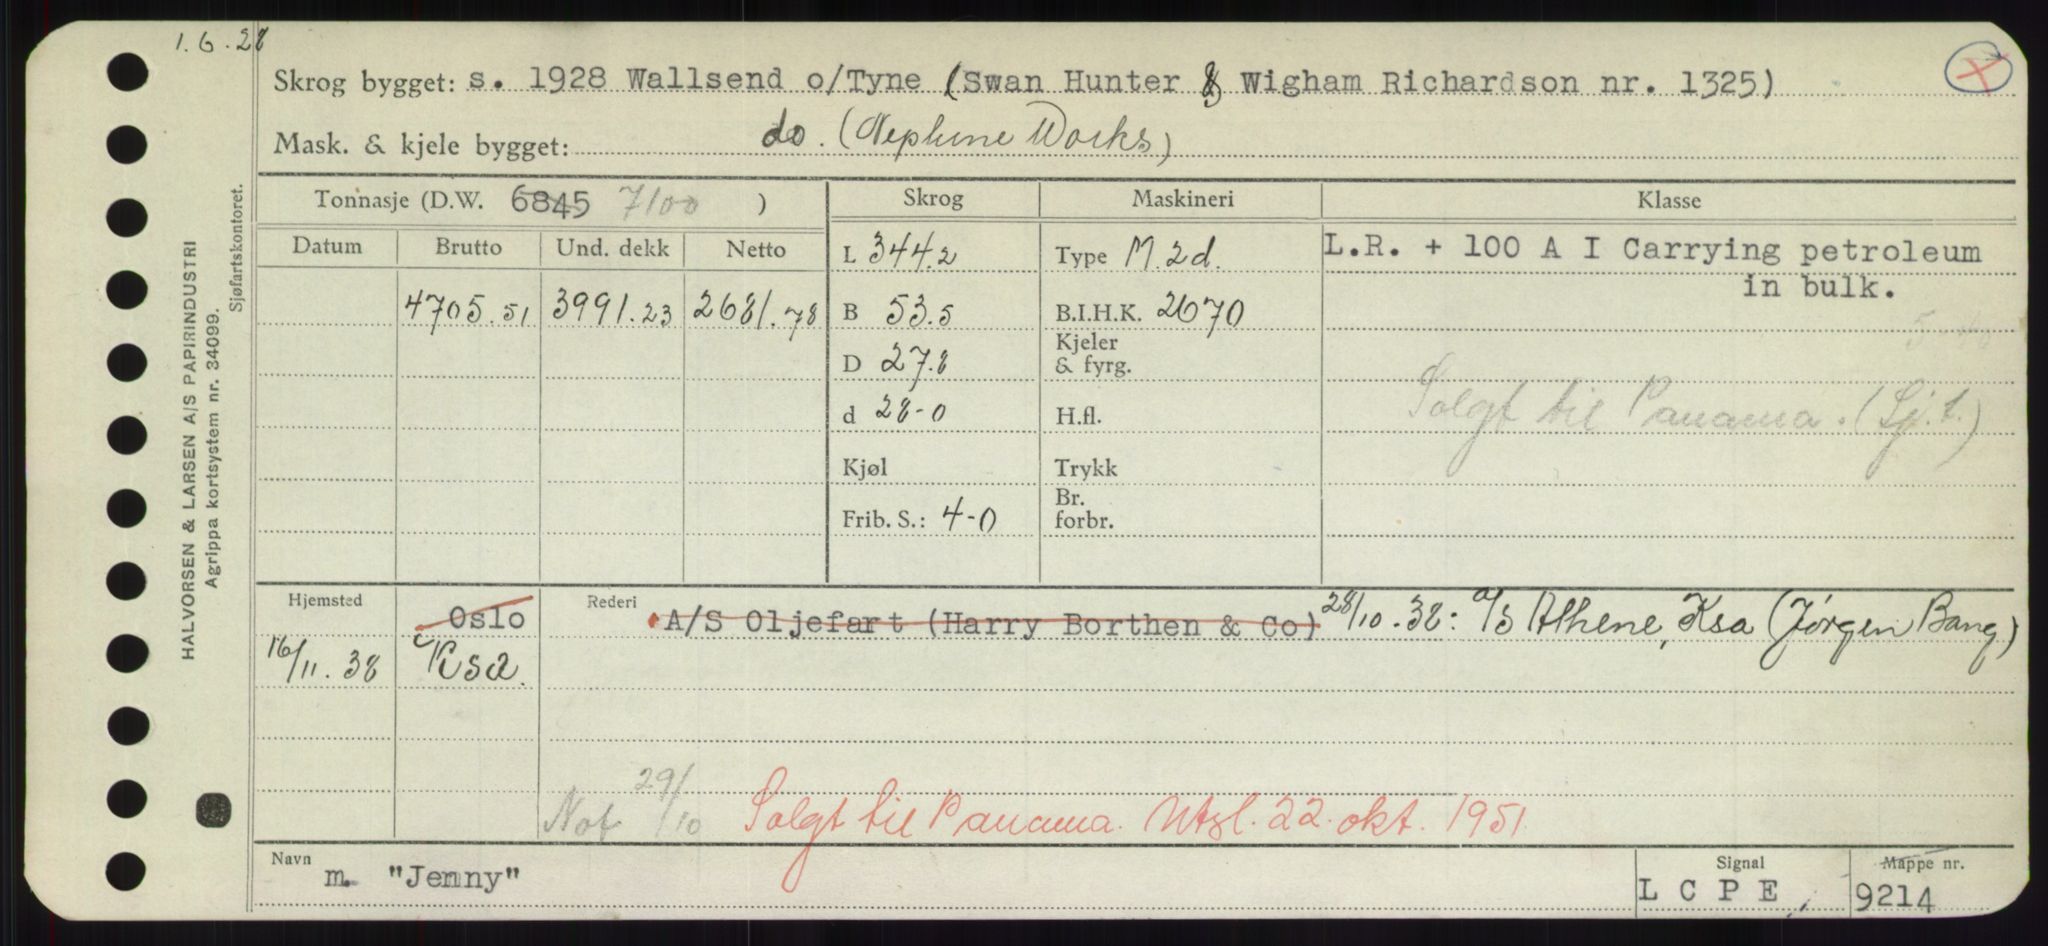 1.6.28
Skrog bygget: s. 1928 Wallsend o/Tyne (Swan Hunter & Wigham Richardson nr. 1325)
Mask. & kjele bygget: do. (Neptune Works)
Tonnasje (D.W. 6845 7100 )
Skrog
Maskineri
Klasse
Datum
Brutto
Und. dekk
Netto
4705.51
3991.23
2681.78
L 344.2
B 53.5
D 27.8
d 28-0
Kjøl
Frib. S.: 4-0
Type M.2d.
B.I.H.K. 2670
Kjeler
& fyrg.
H.fl.
Trykk
Br.
forbr.
L.R. + 100 A I Carrying petroleum
in bulk.
Solgt til Panama. (Sj.t.)
Hjemsted
Oslo
Rederi
A/S Oljefart (Harry Borthen & Co) 28/10.38: A/S Athene, Ksa (Jørgen Bang)
16/11.38 Ksa.
Not 29/10 Solgt til Panama. Utsl. 22. okt. 1951
Navn
m. "Jenny"
Signal
L C P E
Mappe nr.
9214
HALVORSEN & LARSEN A/S PAPIRINDUSTRI
Agrippa kortsystem nr. 34099.
Sjøfartskontoret.